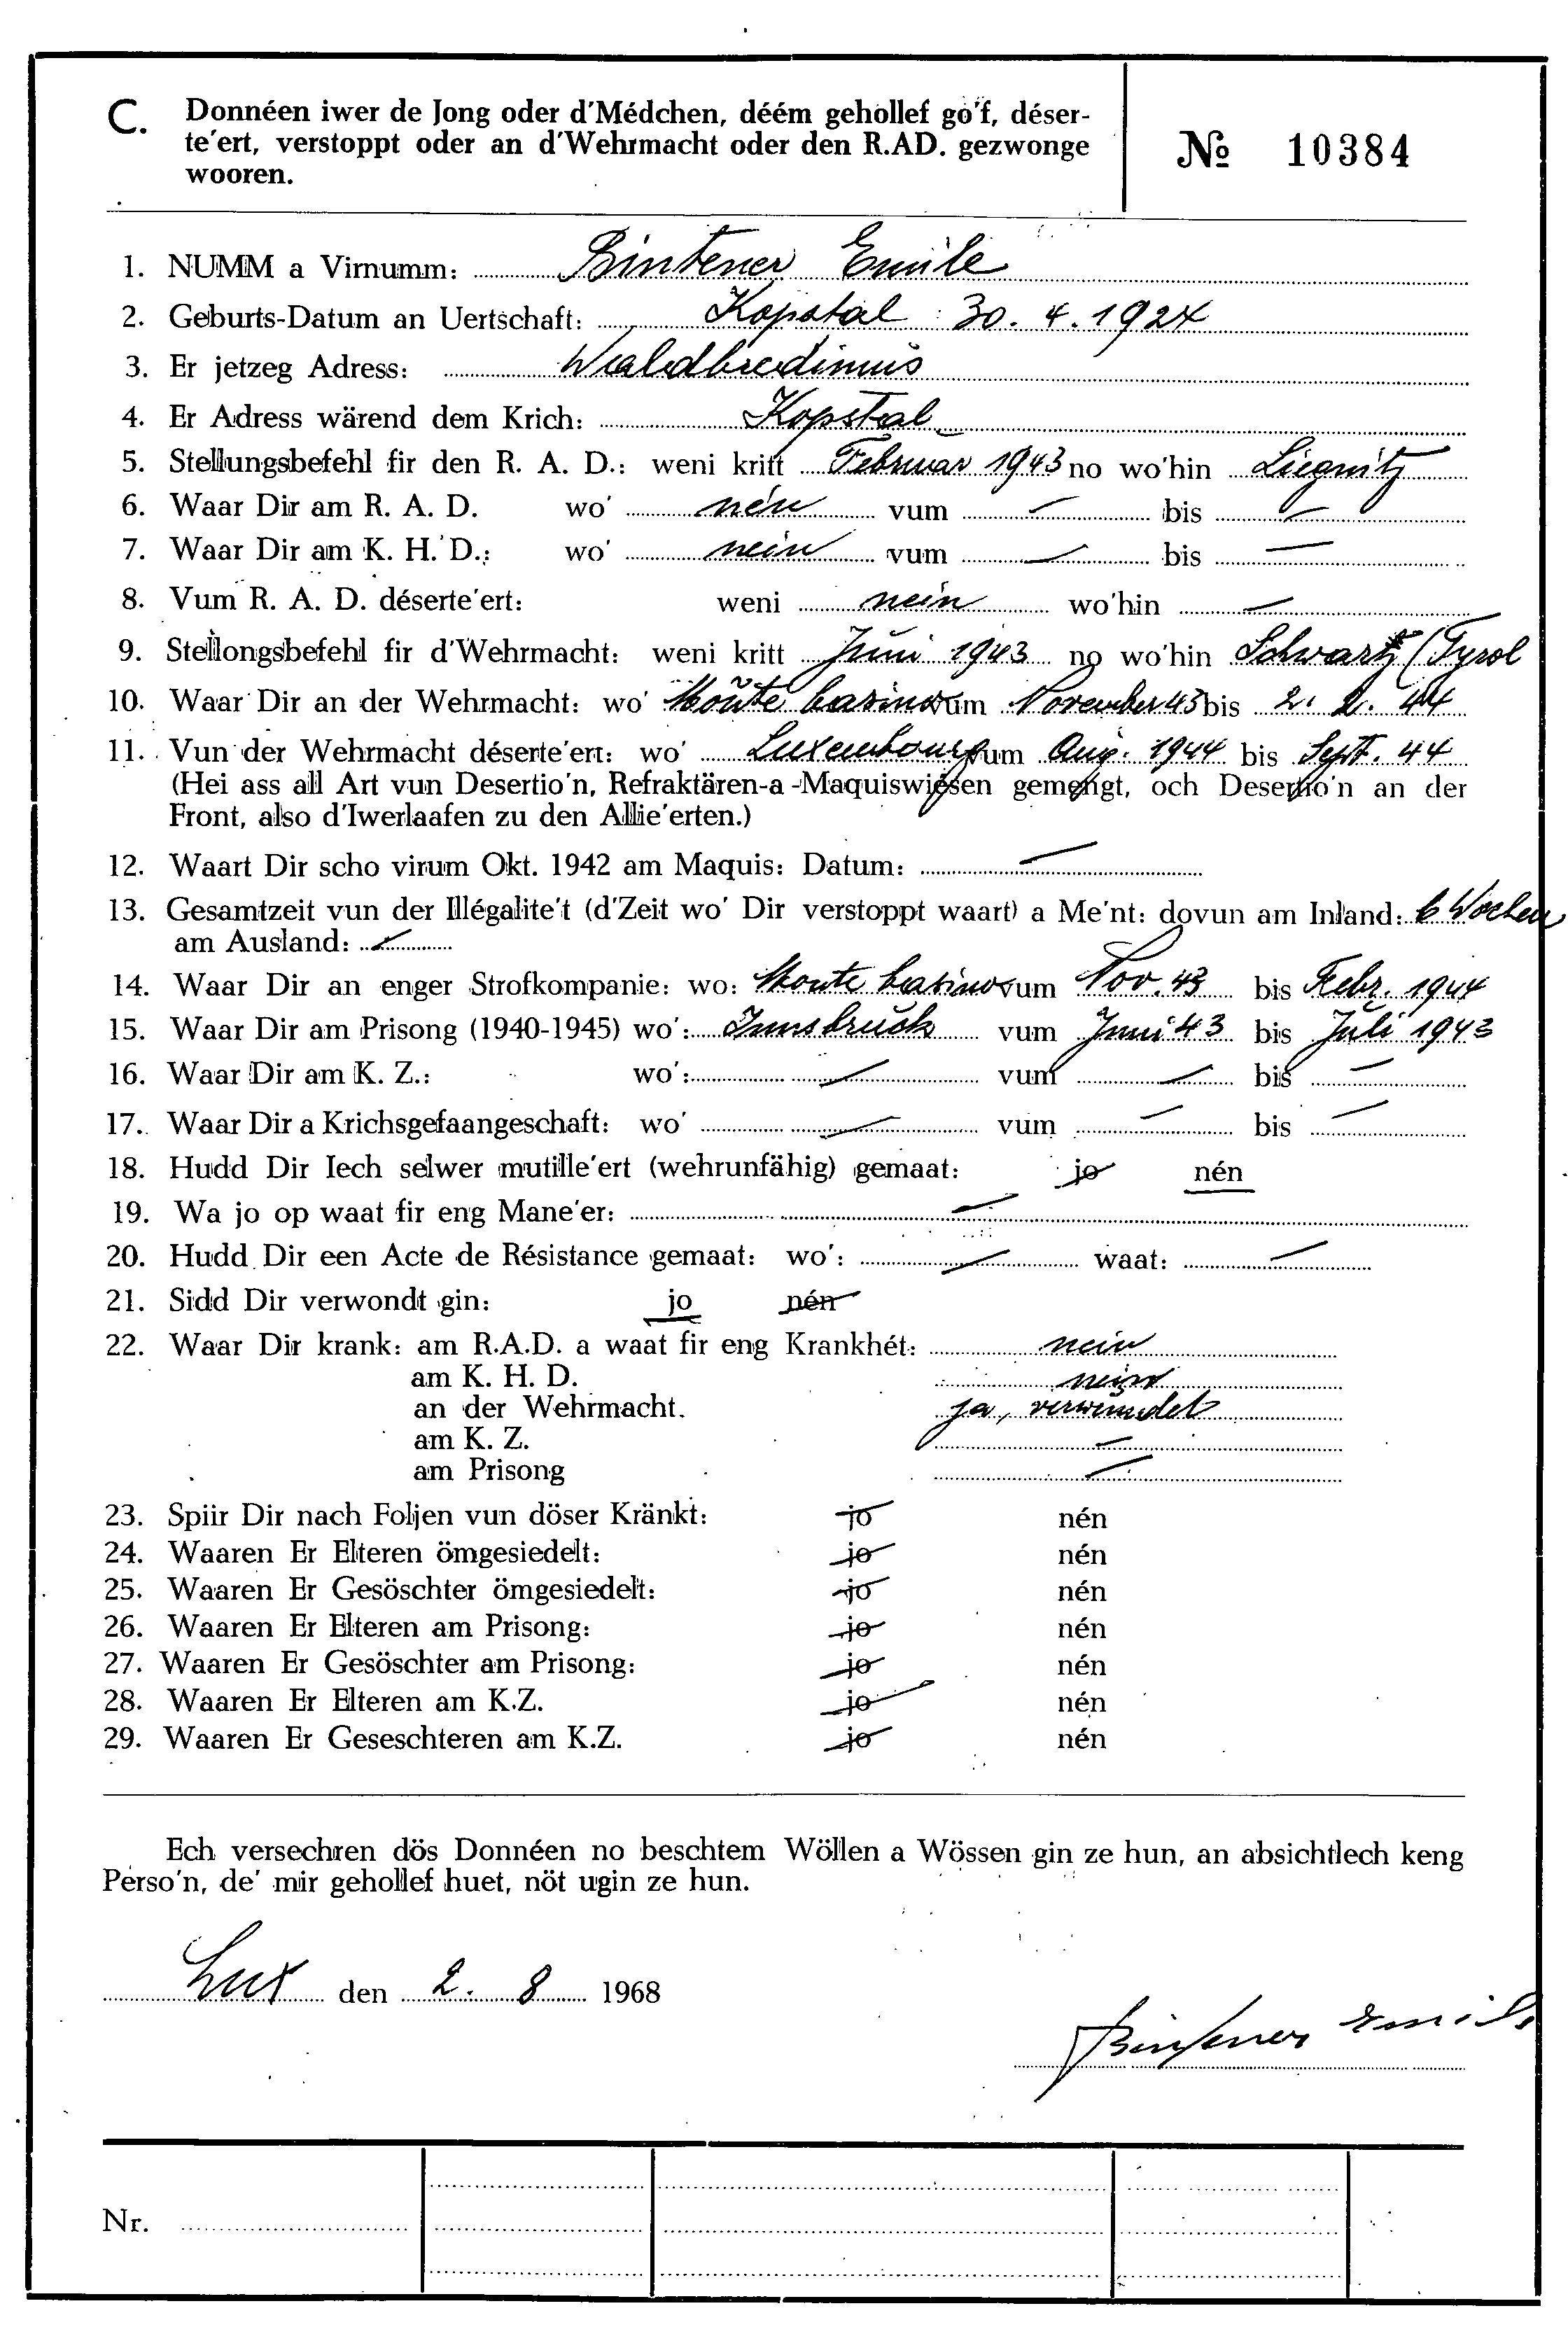 C. Donnéen iwer de Jong oder d'Médchen, déém gehollef go'f, déser-
te'ert, verstoppt oder an d'Wehrmacht oder den R.AD. gezwonge
wooren.
№ 10384
1. NUMM a Virnumm: Bintener Emile
2. Geburts-Datum an Uertschaft: Kopstal 30. 4. 1924
3. Er jetzeg Adress: Waldbredimus
4. Er Adress wärend dem Krich: Kopstal
5. Stellungsbefehl fir den R. A. D.: weni kritt Februar 1943 no wo'hin Liegnitz
6. Waar Dir am R. A. D. wo' nén vum — bis —
7. Waar Dir am K. H. D.: wo' nein vum — bis —
8. Vum R. A. D. déserte'ert: weni nein wo'hin —
9. Stellongsbefehl fir d'Wehrmacht: weni kritt Juni 1943 no wo'hin Schwartz (Tyrol
10. Waar Dir an der Wehrmacht: wo' Monte Casino vum November 43 bis 2. 2. 44
11. Vun der Wehrmacht déserte'ert: wo' Luxembourg vum Aug. 1944 bis Sept. 44
(Hei ass all Art vun Desertio'n, Refraktären-a-Maquiswiesen gemengt, och Desertio'n an der
Front, also d'Iwerlaafen zu den Allie'erten.)
12. Waart Dir scho virum Okt. 1942 am Maquis: Datum: —
13. Gesamtzeit vun der Illégalite't (d'Zeit wo' Dir verstoppt waart) a Me'nt: dovun am Inland: 6 Wochen
am Ausland: —
14. Waar Dir an enger Strofkompanie: wo: Monte Casino vum Nov. 43 bis Febr. 1944
15. Waar Dir am Prisong (1940-1945) wo': Innsbruck vum Juni 43 bis Juli 1943
16. Waar Dir am K. Z.: wo': — vum — bis —
17. Waar Dir a Krichsgefaangeschaft: wo' — vum — bis —
18. Hudd Dir Iech selwer mutille'ert (wehrunfähig) gemaat: jo nén
19. Wa jo op waat fir eng Mane'er: —
20. Hudd Dir een Acte de Résistance gemaat: wo': — waat: —
21. Sidd Dir verwondt gin: jo nén
22. Waar Dir krank: am R.A.D. a waat fir eng Krankhét: nein
am K. H. D. nein
an der Wehrmacht. ja, verwundet
am K. Z. —
am Prisong —
23. Spiir Dir nach Foljen vun döser Kränkt: jo nén
24. Waaren Er Elteren ömgesiedelt: jo nén
25. Waaren Er Gesöschter ömgesiedelt: jo nén
26. Waaren Er Elteren am Prisong: jo nén
27. Waaren Er Gesöschter am Prisong: jo nén
28. Waaren Er Elteren am K.Z. jo nén
29. Waaren Er Geseschteren am K.Z. jo nén
Ech versechren dös Donnéen no beschtem Wöllen a Wössen gin ze hun, an absichtlech keng
Perso'n, de' mir gehollef huet, nöt ugin ze hun.
Lux den 2. 8 1968
Bintener Emile
Nr.